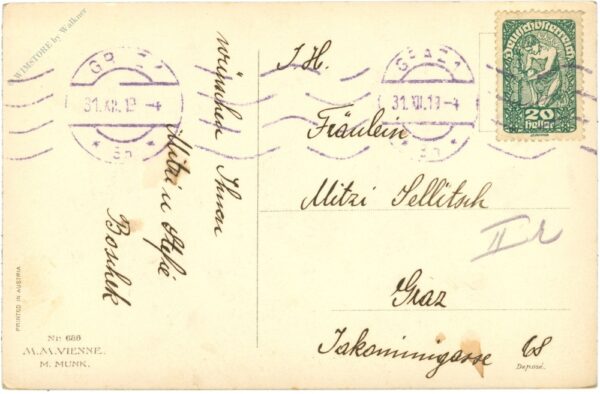 WIMSTORE by Walkner
GRAZ 1
31.XII.19-4
* 5b *
GRAZ 1
31.XII.19-4
* 5b *
Deutschösterreich
20
heller
wünschen Ihnen
Mitzi u
Boschek
I. H.
Fräulein
Mitzi Sellitsch
Graz
Jakominigasse 68
PRINTED IN AUSTRIA
Nr 686
M.M.VIENNE.
M. MUNK.
Deposé.